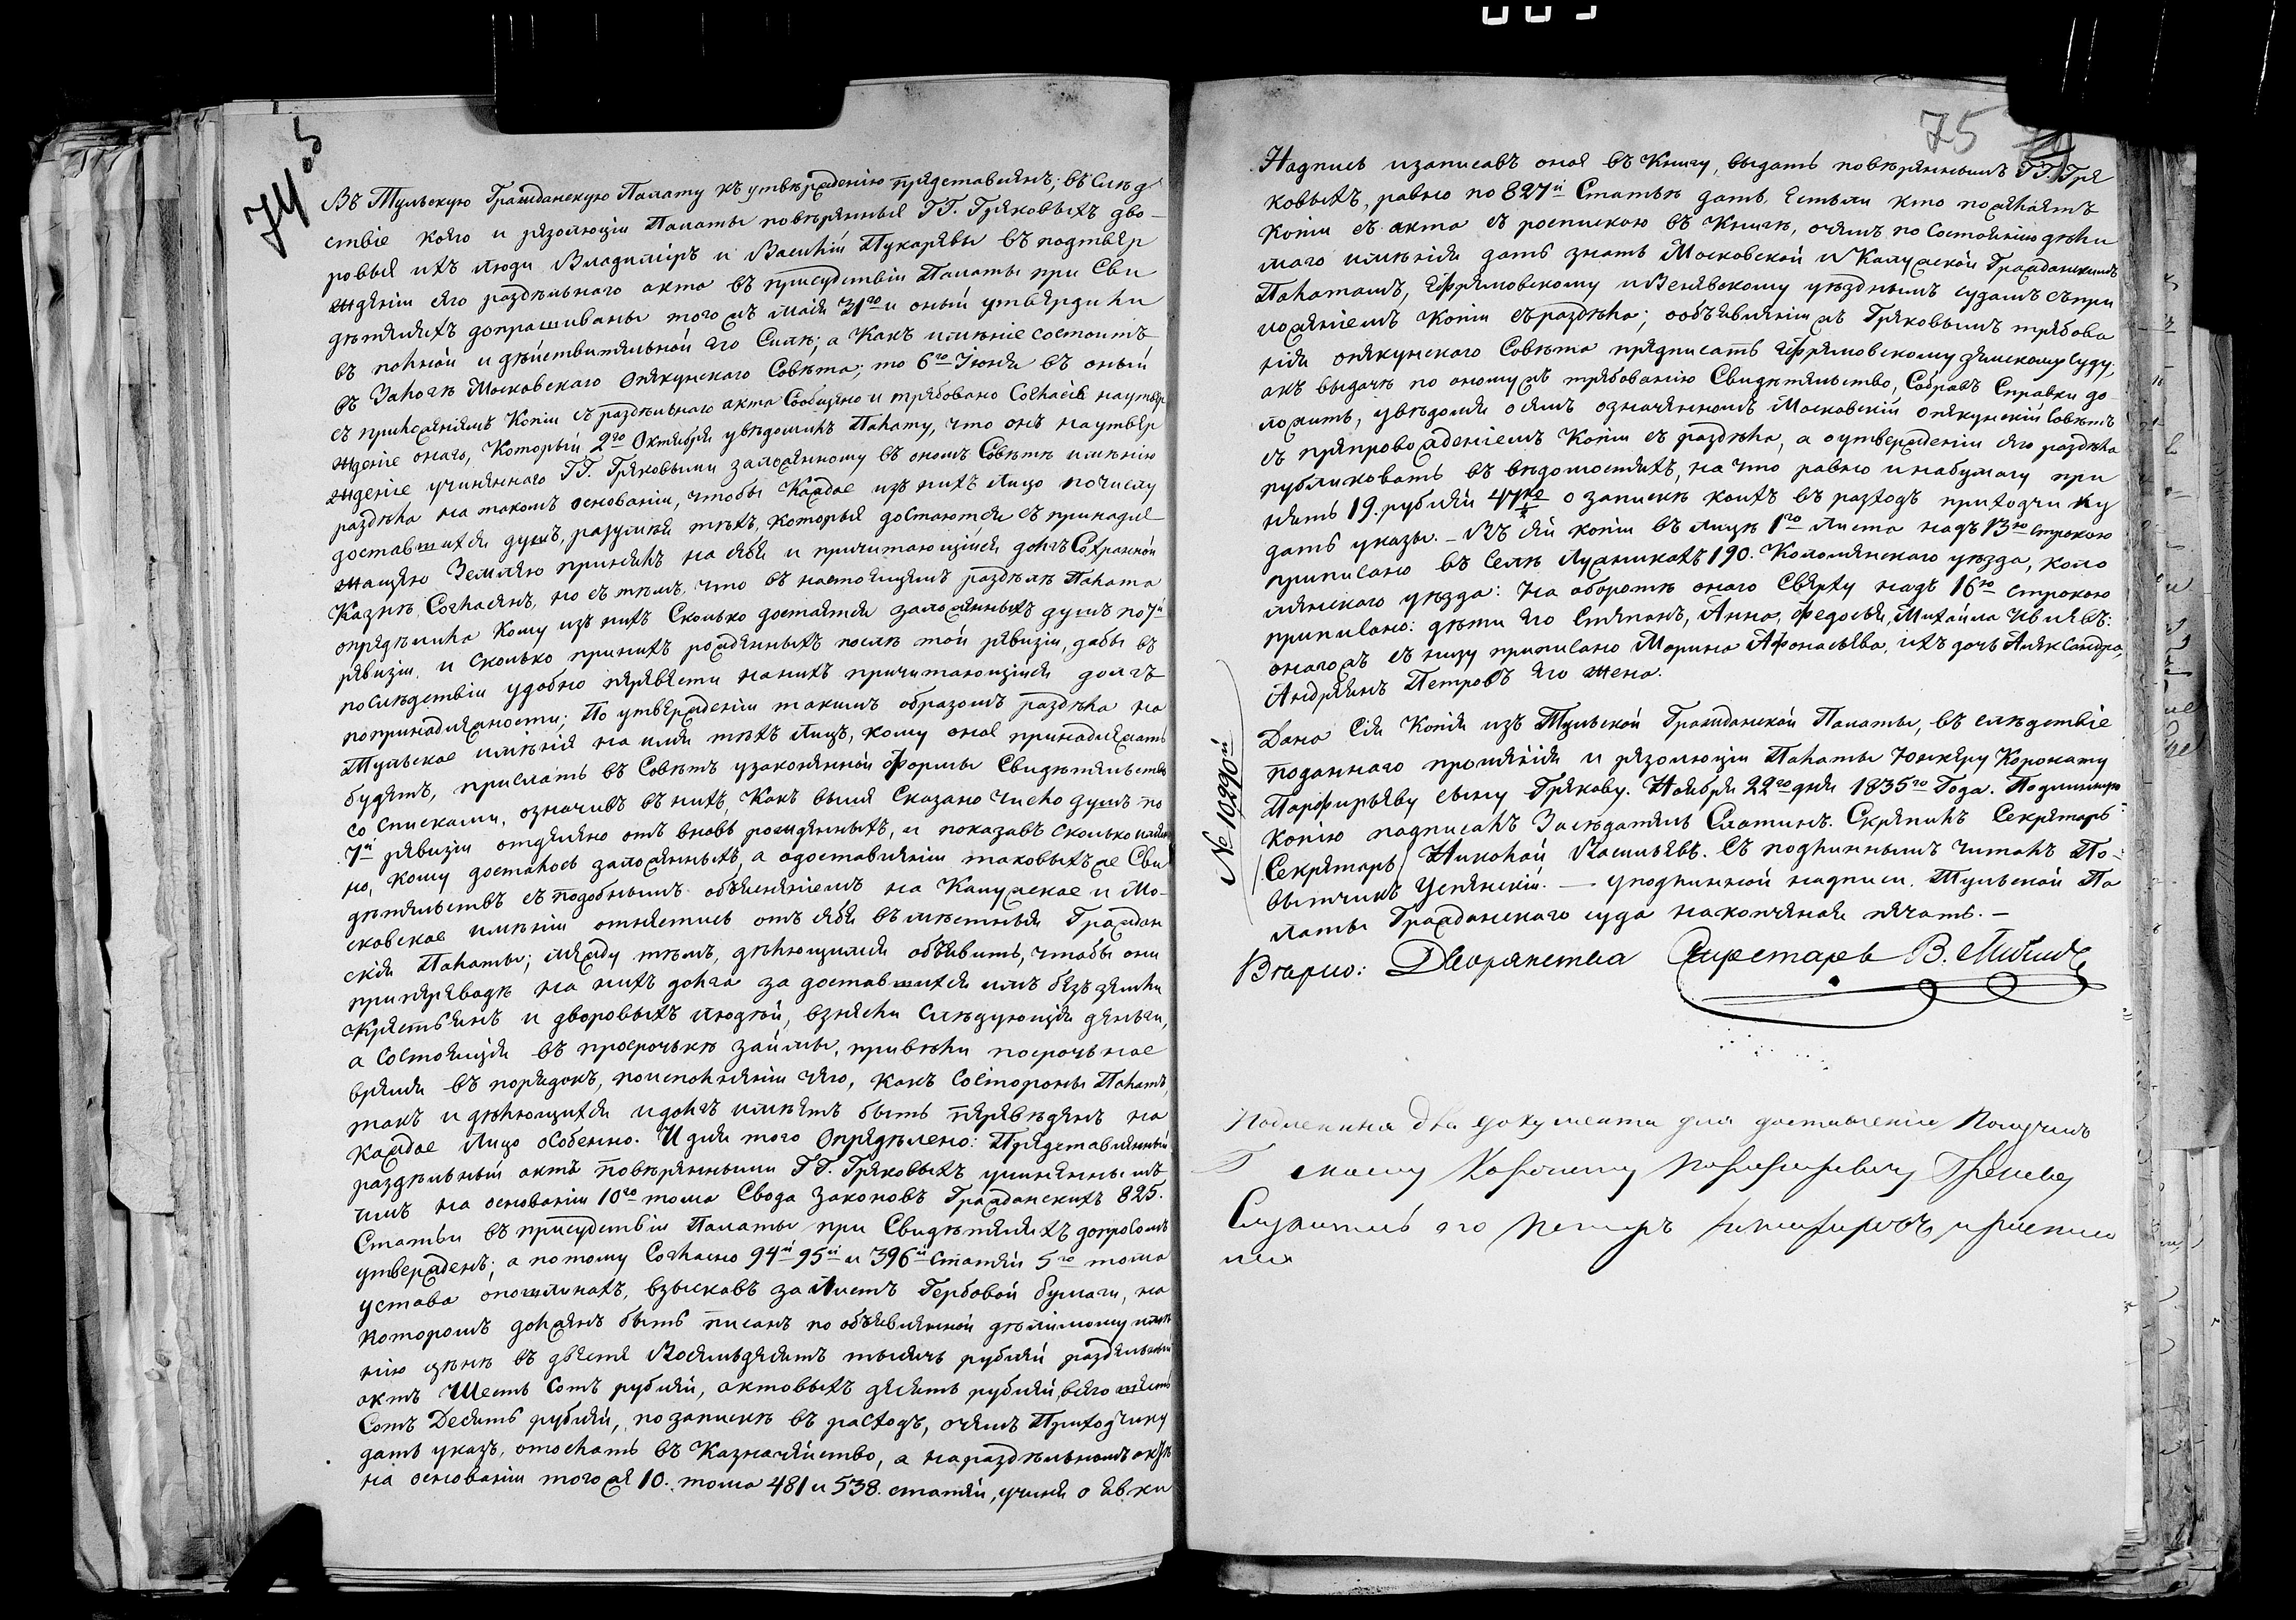 74 об
Въ Тульскую Гражданскую Палату къ утвержденію представленъ; въ слѣд
ствіе коего и резолюціи Палаты повѣренныя ГГ. Грековыхъ дво-
ровыя ихъ люди Владиміръ и Василій Пукаревы въ подтвер
жденіи сего раздѣльнаго акта въ присудствіи Палаты при Сви
дѣтеляхъ допрашиваны того жъ Мая 31го и оный утвердили
въ полной и дѣйствительной его Силѣ; а Какъ имѣніе состоитъ
въ Залогѣ Московскаго Опекунскаго Совѣта; то 6го Іюня въ оный
съ приложеніемъ Копіи съ раздѣльнаго акта Сообщено и требовано Согласія на утвер
жденіе онаго, Который 2го Октября увѣдомилъ Палату, что онъ на утвер
жденіе учиненнаго ГГ. Грековыми заложенному въ ономъ Совѣтѣ имѣнію
раздѣла на такомъ основаніи, чтобы Каждое изъ нихъ Лицо по числу
доставшихся душъ, разумѣя тѣхъ, которыя достаются съ принадле
жащею Землею принялъ на себя и причитающійся долгъ Сохранной
Казнѣ Согласенъ, но съ тѣмъ, что въ настоящемъ раздѣлѣ Палата
опредѣлила Кому изъ нихъ Сколько достается заложенныхъ душъ по 7й
ревизіи, и сколько при нихъ рожденныхъ послѣ той ревизіи, дабы въ
послѣдствіи удобно перевести на нихъ причитающійся долгъ
по принадлежности; По утвержденіи такимъ образомъ раздѣла на
Тульское имѣнія на имя тѣхъ Лицъ, кому оное принадлежать
будетъ, прислать въ Совѣтъ узаконенной Формы Свидѣтельство
со списками, означивъ въ нихъ, Какъ выше Сказано Число душъ по
7й ревизіи отдѣльно отъ вновь рожденныхъ, и показавъ сколько имян
но, кому досталось заложенныхъ, а о доставленіи таковыхъ же Сви
дѣтельствъ съ подобнымъ объясненіемъ на Калужское и Мо-
сковское имѣніи отнестись отъ себя въ мѣстныя Граждан
скія Палаты; между тѣмъ, дѣлющимся объявить, чтобы они
при переводѣ на нихъ долга за доставшихся имъ безъ земли
Крестьянъ и дворовыхъ людей, взнесли Слѣдующія деньги,
а Состоящія въ просрочькѣ займы, привѣли посрочьное
время въ порядокъ, по исполненіи чего, какъ Состороны Палаты,
такъ и дѣлющихся и долгъ имѣетъ быть переведенъ на
Каждое Лицо особенно. И для того Опредѣлено: Представленный
раздѣльный актъ повѣренными ГГ. Грековыхъ учиненнымъ
имъ на основаніи 10го тома Свода Законовъ Гражданскихъ 825.
Статьи въ присудствіи Палаты при Свидѣтеляхъ допросомъ
утвержденъ; а потому Согласно 94й 95й и 396й Статей 5го тома
устава опошлинахъ, взыскавъ за Листъ Гербовой бумаги, на
которомъ долженъ быть писанъ по объявленной дѣлимому имѣ
нію цѣнѣ въ двести Восемьдесятъ тысячь рублей раздѣльный
актъ Шесть Сотъ рублей, актовыхъ десять рублей, всего шесть
Сотъ Десять рублей, по запискѣ въ расходъ, о чемъ Приходчику
дать указъ, отослать въ Казначейство, а на раздѣльномъ актѣ
на основаніи того же 10. тома 481 и 538. статей, учиня о явки
75
Надпись и записавъ оной въ Книгу, выдать повѣреннымъ ГГ. Гре
ковыхъ, равно по 827й Статьѣ дать, Естьли кто пожелаетъ
Копіи съ акта съ роспискою въ Книгѣ, о чемъ по Состоянію дѣли
маго имѣнія дать знать Московской и Калужской Гражданскимъ
Палатамъ, Ефремовскому и Веневскому уѣзднымъ судамъ съ при
ложеніемъ Копіи съ раздѣла; о объявленіи жъ Грековымъ требова
нія опекунскаго Совѣта предписать Ефремовскому Земскому Суду,
а къ выдачѣ по оному жъ требованію Свидѣтельство, Собравъ Справки до-
ложить, увѣдомя о семъ означенномъ Московскій опекунскій Совѣтъ
съ препровожденіемъ Копіи съ раздѣла, а о утвержденіи сего раздѣла
публиковать въ вѣдомостяхъ, на что равно и на бумагу при
нять 19. рублей 47 ко о запискѣ коихъ въ расходъ приходчику
дать указы. – Въ сей копіи въ Лицѣ 1го Листа надъ 13ю строкою
приписано въ Селѣ Лужникахъ 190. Коломенскаго уѣзда, коло
менскаго уѣзда: На оборотѣ онаго Сверху надъ 16ю строкою
приписано: дѣти его Степанъ, Анна, Федосья, Михайла Ивлевъ:
онаго жъ съ низу приписано Марина Афонасьева, ихъ дочь Александра,
Андреянъ Петровъ его жена.
№ 10290й
Дана Сія Копія изъ Тульской Гражданской Палаты, въ слѣдствіе
поданнаго прошенія и резолюціи Палаты Юнкеру Коронату
Парфирьеву сыну Грекову. Ноября 22го дня 1835го Года. Подлинную
Копію подписалъ Засѣдатель Слатинъ. Скрепилъ Секретарь
Секретарь Николай Васильевъ. Съ подлиннымъ читалъ По-
вытчикъ Успенскій. — У подлинной надписи Тульской Па
латы Гражданскаго суда на копченая печать. –
Вѣрно: Дворянства Секретарь В.
Подлинныя два документа для доставленія Получилъ
Г моему Порфирьевичу Грекову
Служитель его Петръ